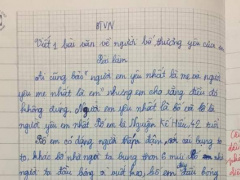 TVVN
Viết 1 bài văn về người bố thương yêu của em
Bài làm
Ai cũng bảo người em yêu nhất là mẹ và người
yêu mẹ nhất là em nhưng em cho rằng điều đó
không đúng. Người em yêu nhất là bố có lẽ là
người yêu em nhất. Bố em là Nguyễn Kế Hậu, 42 tuổi
Bố em có dáng người thấp đậm, với cái bụng to
to. Khác bố nhà người ta bụng thon 6 múi
ta đều bóng bố em